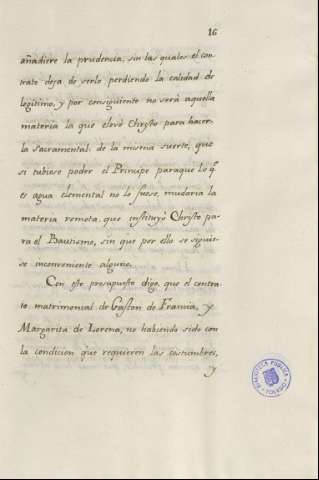 16
añadiere la prudencia, sin las quales el con
trato deja de serlo perdiendo la calidad de
legitimo, y por consiguiente no será aquella
materia la que elevó Christo para hacer-
la Sacramental: de la misma suerte, que
si tubiese poder el Principe para que lo q̃
es agua elemental no lo fuese, mudaria la
materia remota, que instituyó Christo pa-
ra el Bautismo, sin que por ello se siguie-
se inconveniente alguno.
Con este presupuesto digo, que el contra
to matrimonial de Gaston de Francia, y
Margarita de Lorena, no habiendo sido con
la condicion que requieren las costumbres,
y
BIBLIOTECA PUBLICA
TOLEDO